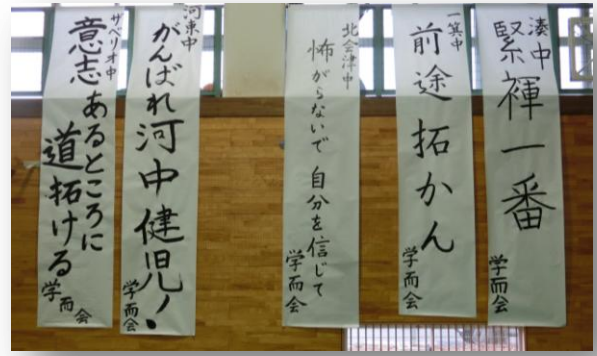 湊中
緊褌一番
学而会
一箕中
前途拓かん
学而会
北会津中
怖がらないで 自分を信じて
学而会
河東中
がんばれ河中健児!
学而会
ザベリオ中
意志あるところに
道拓ける
学而会